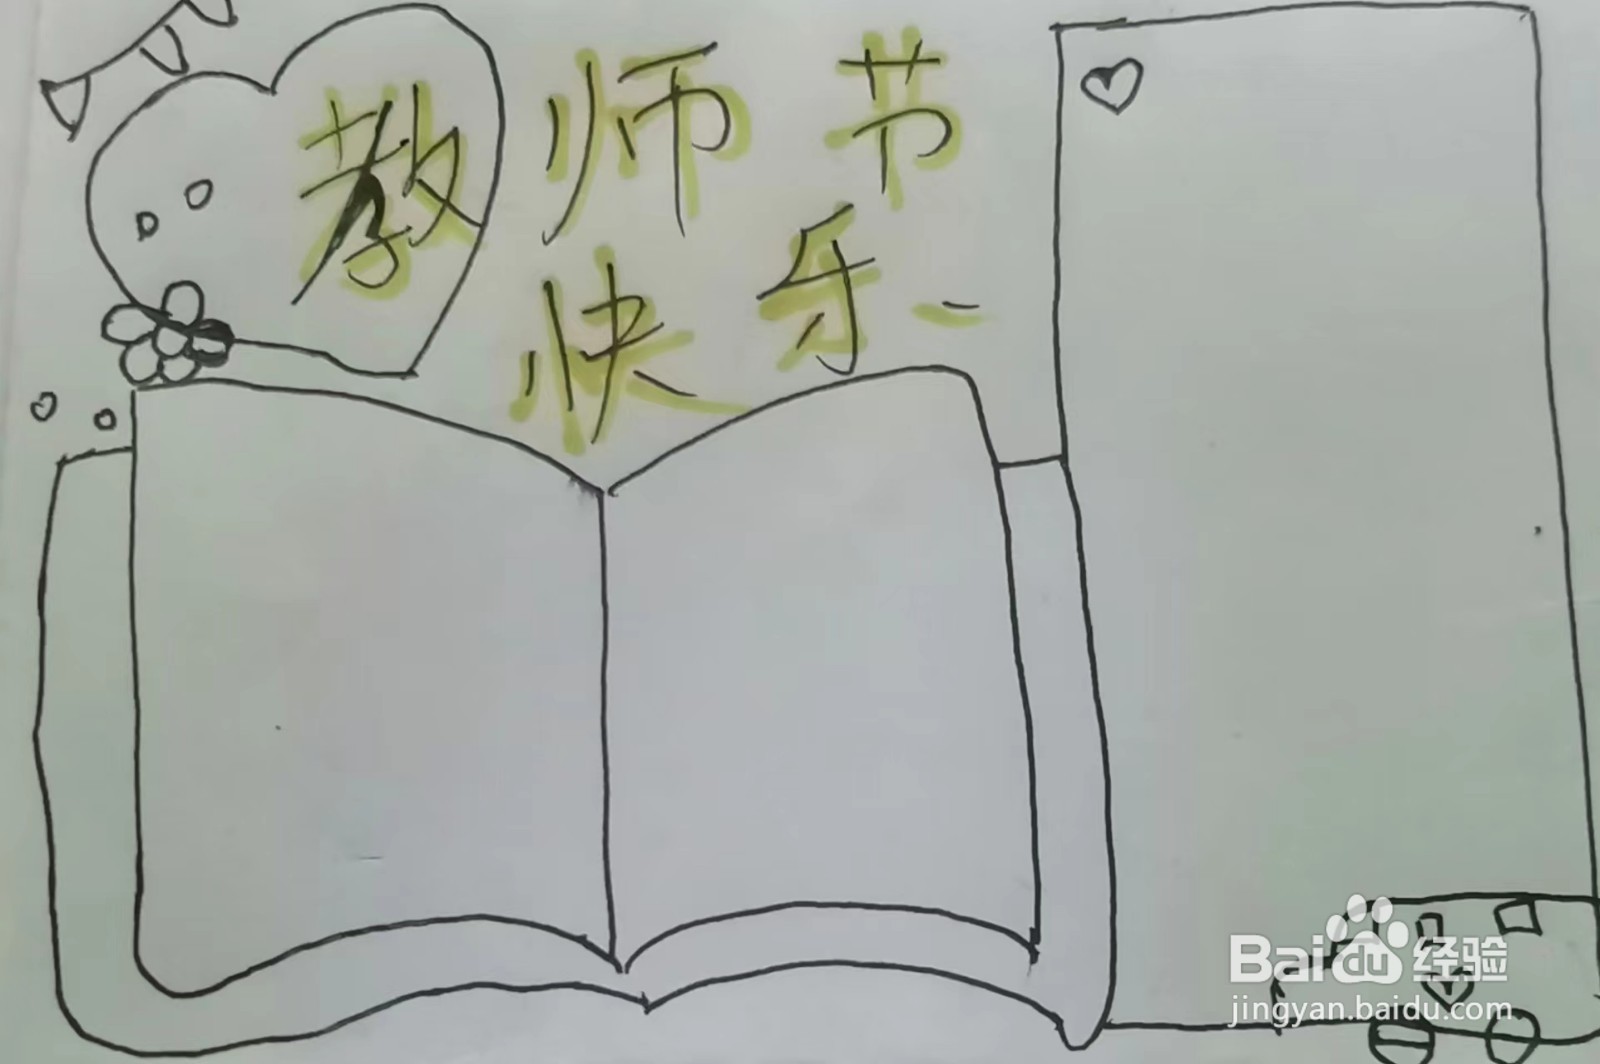 教师节
快乐
Baidu 经验
jingyan.baidu.com